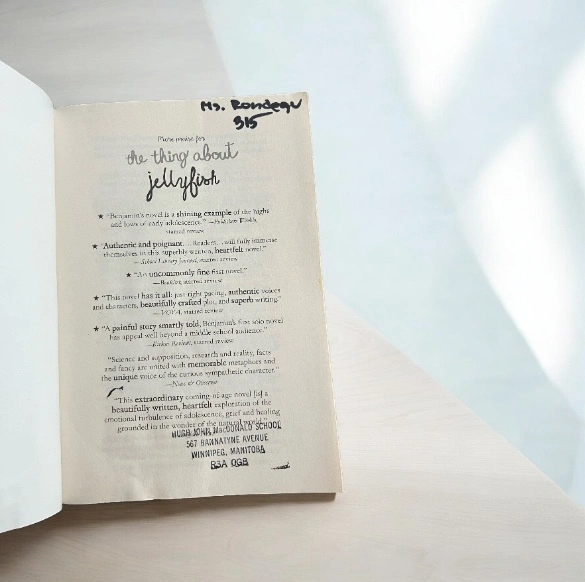 Ms. Rondeau
315
More praise for
the thing about
jellyfish
★ "Benjamin's novel is a shining example of the highs
and lows of early adolescence." —Publishers Weekly,
starred review
★ "Authentic and poignant.... Readers... will fully immerse
themselves in this superbly written, heartfelt novel."
—School Library Journal, starred review
★ "An uncommonly fine first novel."
—Booklist, starred review
★ "This novel has it all: just-right pacing, authentic voices
and characters, beautifully crafted plot, and superb writing."
—VOYA, starred review
★ "A painful story smartly told, Benjamin's first solo novel
has appeal well beyond a middle school audience."
—Kirkus Reviews, starred review
"Science and supposition, research and reality, facts
and fancy are united with memorable metaphors and
the unique voice of the curious sympathetic character."
—News & Observer
"This extraordinary coming-of-age novel [is] a
beautifully written, heartfelt exploration of the
emotional turbulence of adolescence, grief and healing
grounded in the wonder of the natural world."
HUGH JOHN MacDONALD SCHOOL
567 BANNATYNE AVENUE
WINNIPEG, MANITOBA
R3A 0G8